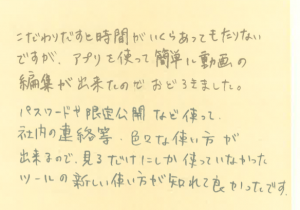 こだわりだすと時間がいくらあってもたりない
ですが、アプリを使って簡単に動画の
編集が出来たのでおどろきました。
パスワードや限定公開など使って、
社内の連絡等、色々な使い方が
出来るので、見るだけにしか使っていなかった
ツールの新しい使い方が知れて良かったです。